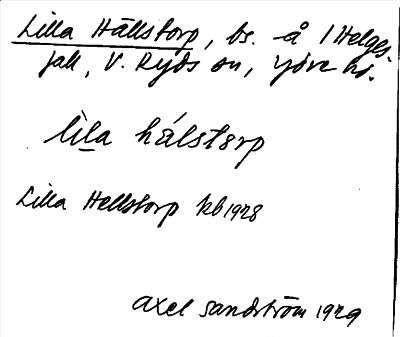 Lilla Hällstorp, bs. å 1 Helges
fall, V. Ryds sn, Ydre hd.
lìla hálstərp
Lilla Hellstorp kb 1928
Axel Sandström 1929